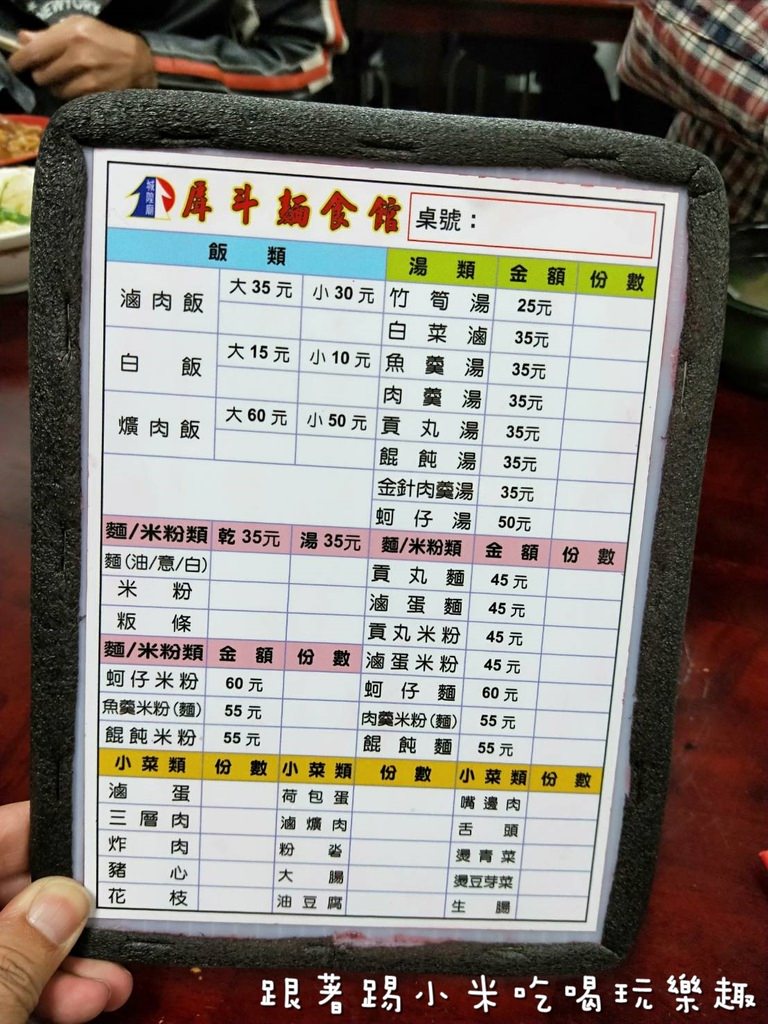 NEW YORK
城隍廟 犀斗麵食館 桌號：
飯類 湯類 金額 份數
滷肉飯 大35元 小30元 竹筍湯 25元
白菜滷 35元
白飯 大15元 小10元 魚羹湯 35元
肉羹湯 35元
爌肉飯 大60元 小50元 貢丸湯 35元
餛飩湯 35元
金針肉羹湯 35元
蚵仔湯 50元
麵/米粉類 乾35元 湯35元 麵/米粉類 金額 份數
麵(油/意/白) 貢丸麵 45元
米粉 滷蛋麵 45元
粄條 貢丸米粉 45元
麵/米粉類 金額 份數 滷蛋米粉 45元
蚵仔米粉 60元 蚵仔麵 60元
魚羹米粉(麵) 55元 肉羹米粉(麵) 55元
餛飩米粉 55元 餛飩麵 55元
小菜類 份數 小菜類 份數 小菜類 份數
滷蛋 荷包蛋 嘴邊肉
三層肉 滷爌肉 舌頭
炸肉 粉肝 燙青菜
豬心 大腸 燙豆芽菜
花枝 油豆腐 生腸
跟著踢小米吃喝玩樂趣